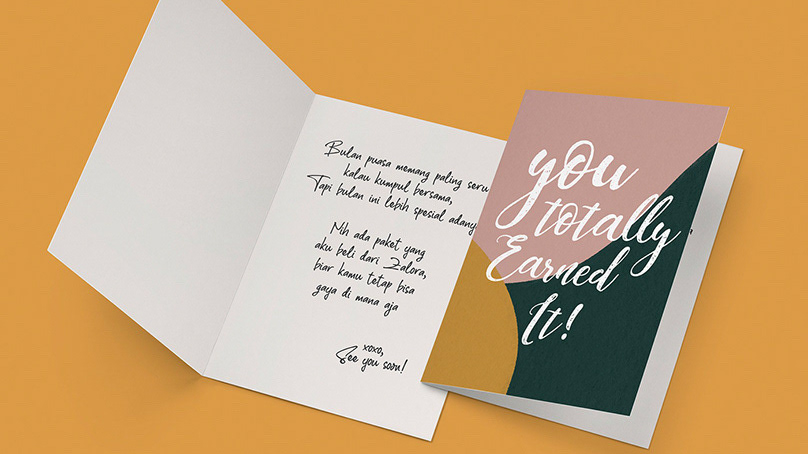 Bulan puasa memang paling seru
kalau kumpul bersama,
Tapi bulan ini lebih spesial adany
Nih ada paket yang
aku beli dari Zalora,
biar kamu tetap bisa
gaya di mana aja
xoxo,
See you soon!
you
totally
Earned
It!